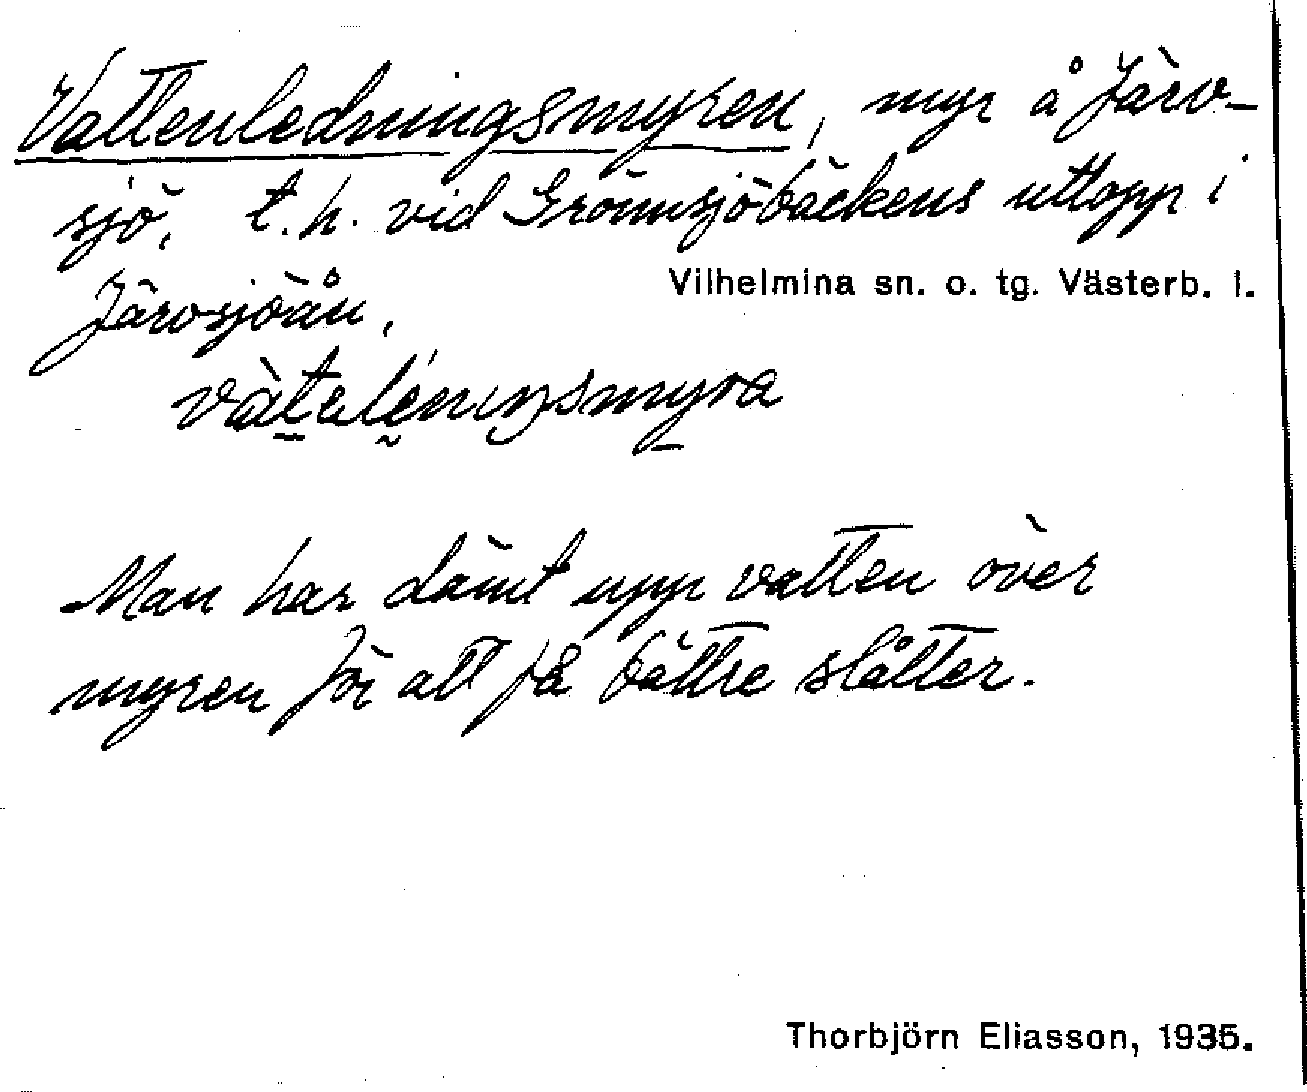 Vattenledningsmyren, myr å Järv-
sjö, t.h. vid Grönsjöbäckens utlopp i
Vilhelmina sn. o. tg. Västerb. l.
Järvsjöån,
Man har dämt upp vatten över
myren för att få bättre slåtter.
Thorbjörn Eliasson, 1935.